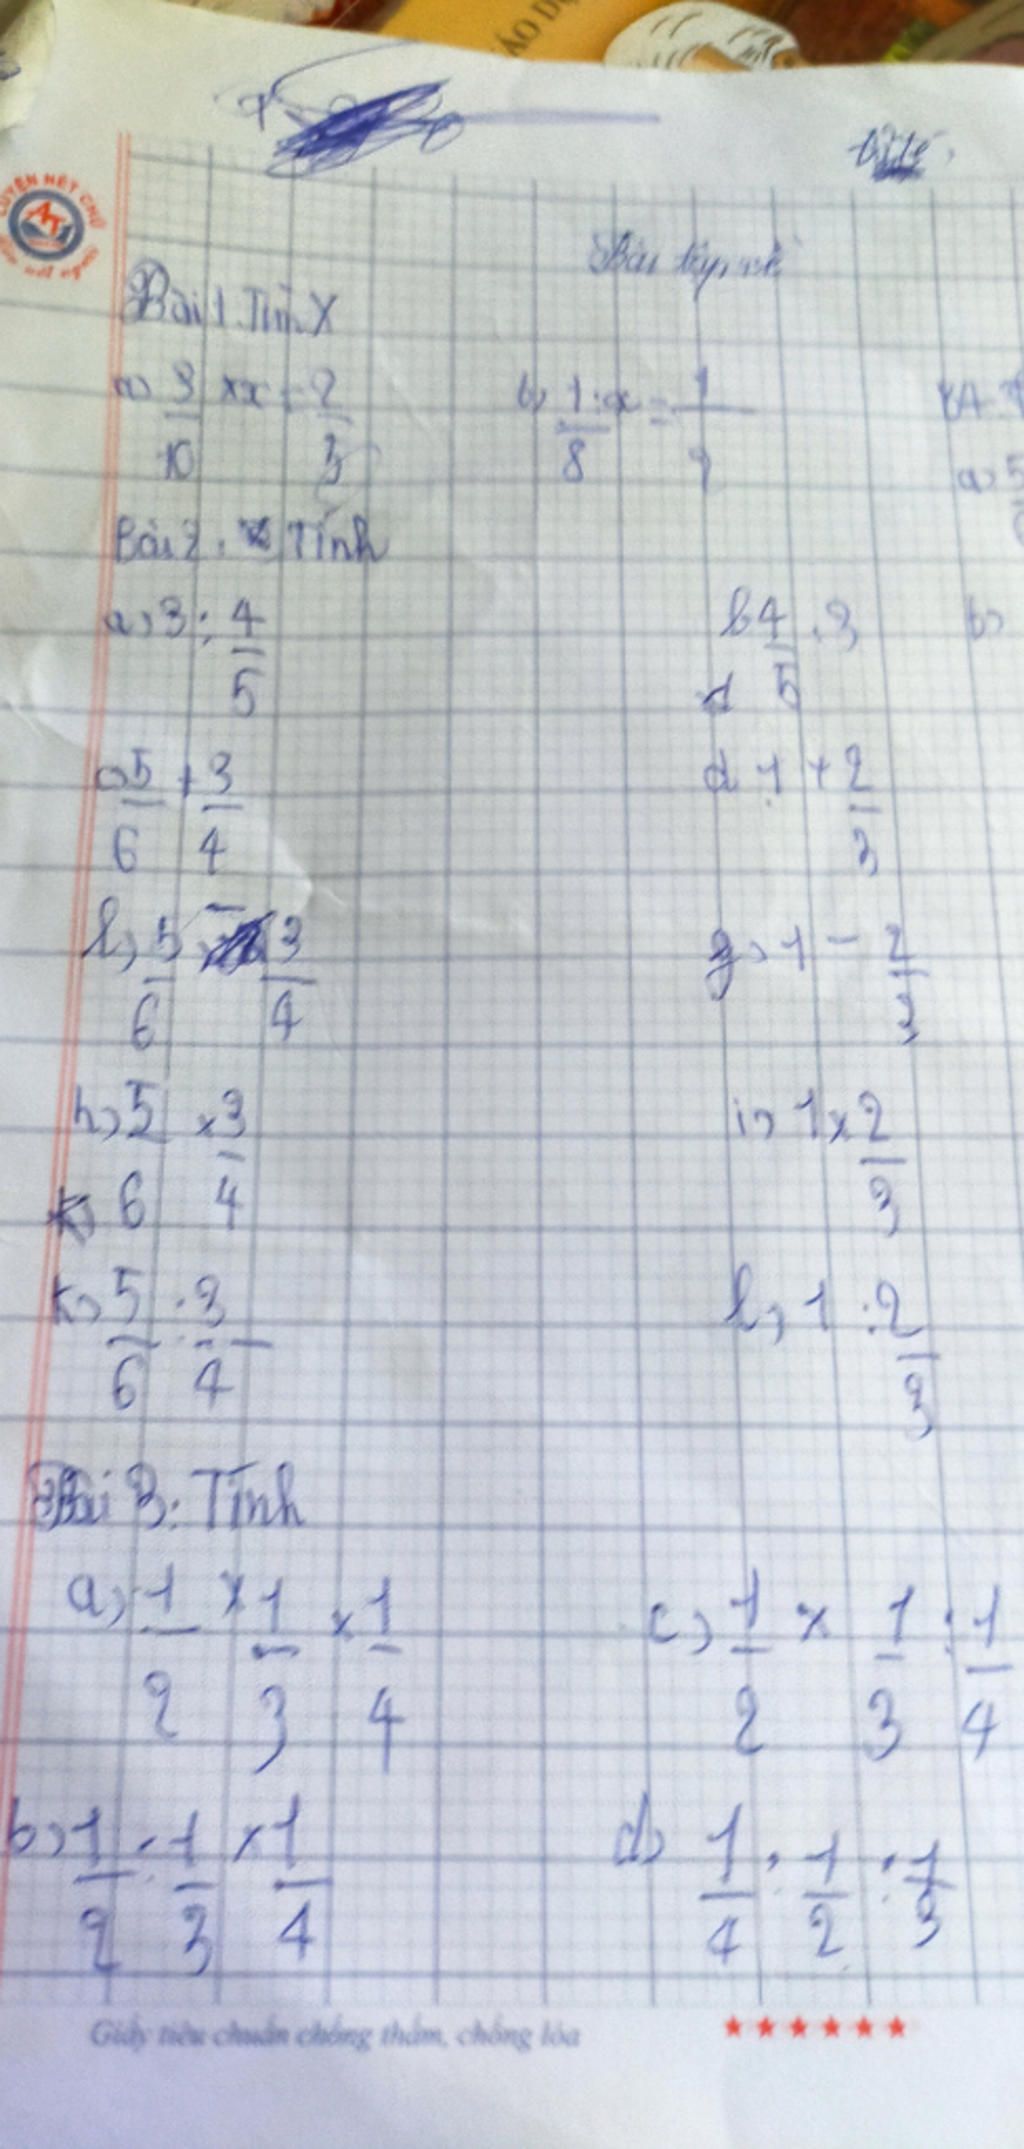 LUYỆN NÉT CHỮ
AT
nét người
Bài 1. Tìm X
a) 3/10 × x = 2/3
b) 1/8 : x = 1/9
a) 5
Bài 2. Tính
a) 3 : 4/5
b 4/5 : 3
b)
c) 5/6 + 3/4
d 1 + 2/3
l) 5/6 - 3/4
g) 1 - 2/3
h) 5/6 × 3/4
i) 1 × 2/3
k) 5/6 : 3/4
l) 1 : 2/3
Bài 3: Tính
a) 1/2 × 1/3 × 1/4
c) 1/2 × 1/3 : 1/4
b) 1/2 : 1/3 × 1/4
d) 1/4 : 1/2 : 1/3
Giấy tiêu chuẩn chống thấm, chống lóa